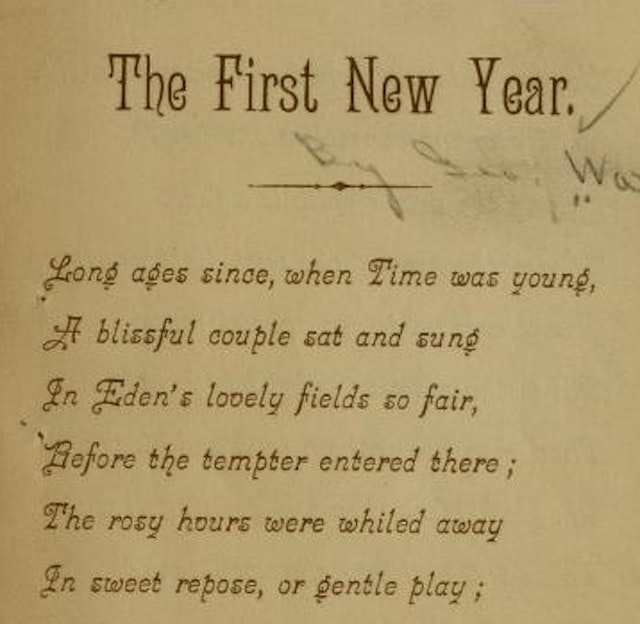 The First New Year.
By Geo. Wa
Long ages since, when Time was young,
A blissful couple sat and sung
In Eden's lovely fields so fair,
Before the tempter entered there;
The rosy hours were whiled away
In sweet repose, or gentle play;